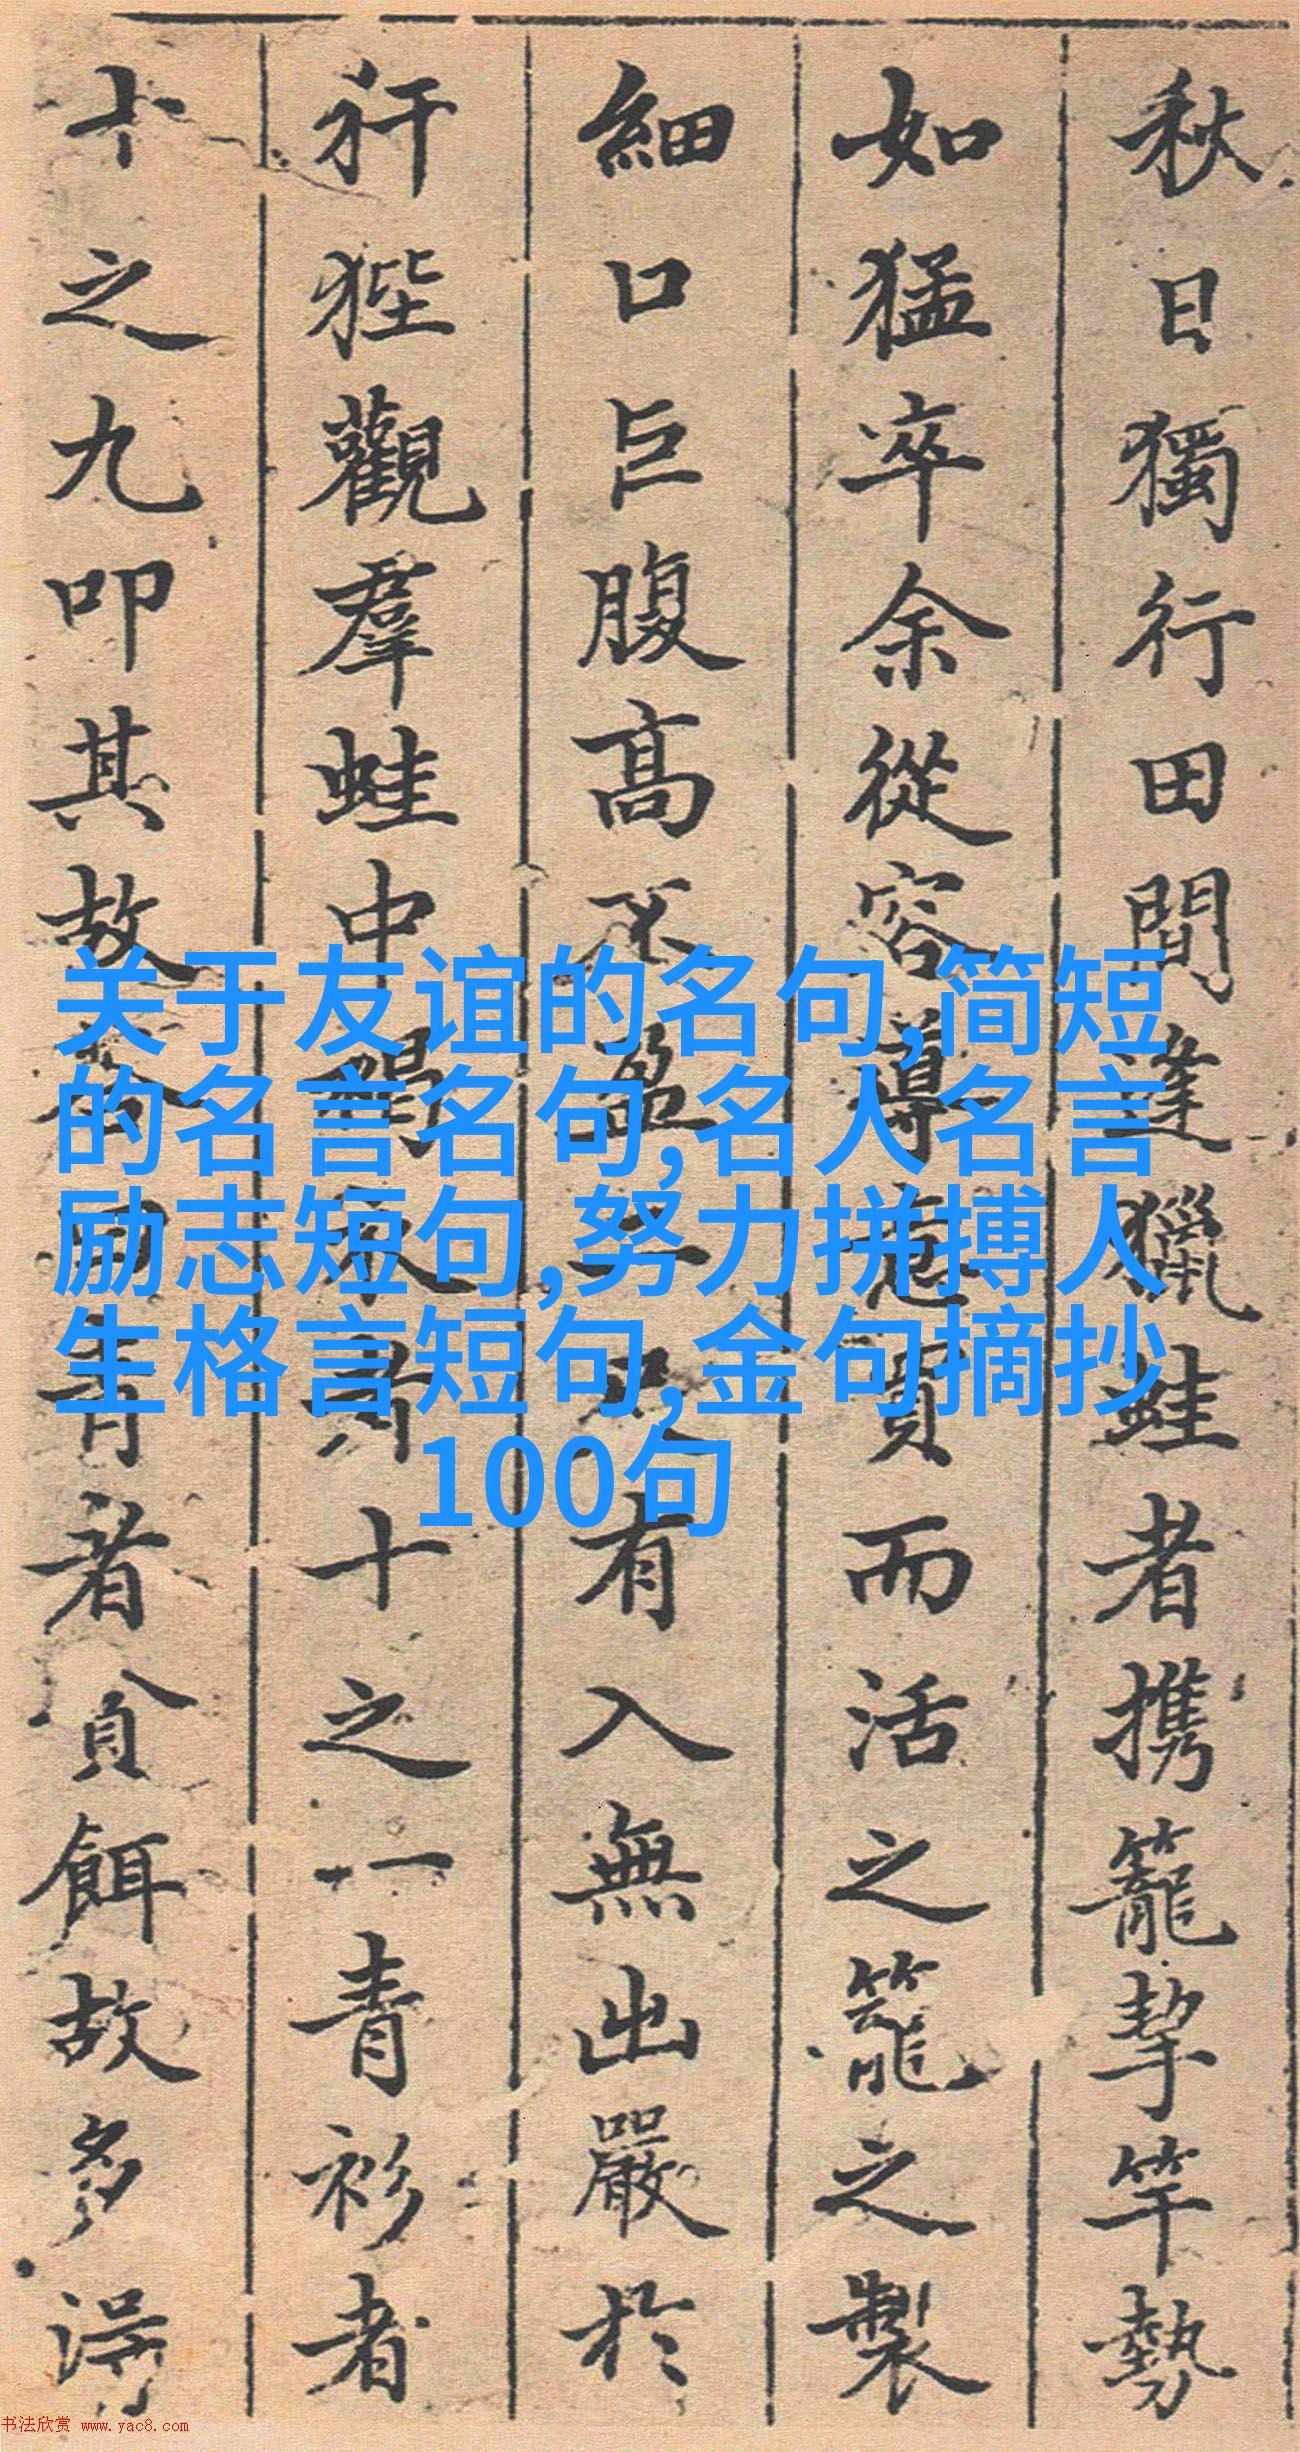 秋日獨行田間逢獵蛙者携籠挈竿勢
如猛卒余從容導而活之籠之製
細口巨腹高不盈尺有入無出嚴於
犴狴觀羣蛙中褐衣者十之一青衫者
十之九叩其故答曰青者貪餌故多得
关于友谊的名句,简短
的名言名句,名人名言
励志短句,努力拼搏人
生格言短句,金句摘抄
100句
书法欣赏 www.yac8.com